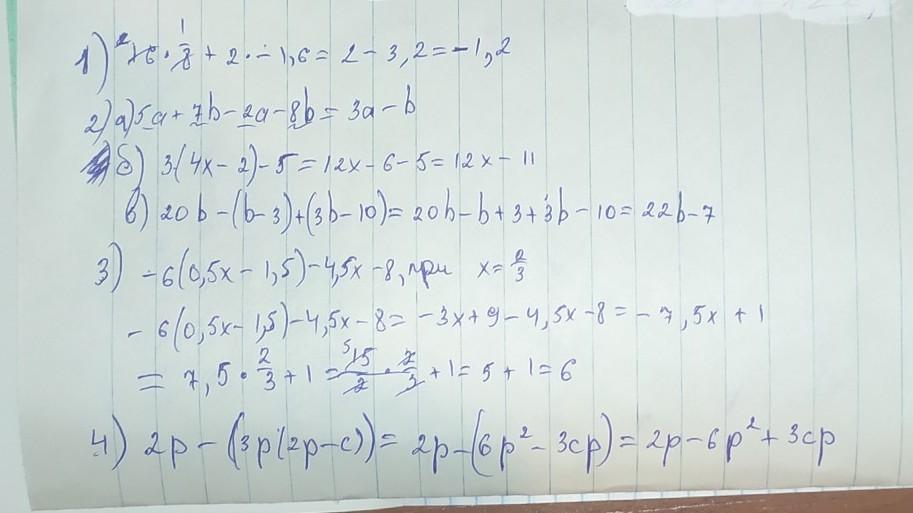 1) 16 · 1/8 + 2 · - 1,6 = 2 - 3,2 = -1,2
2) а) 5a + 7b - 2a - 8b = 3a - b
б) 3(4x - 2) - 5 = 12x - 6 - 5 = 12x - 11
в) 20b - (b - 3) + (3b - 10) = 20b - b + 3 + 3b - 10 = 22b - 7
3) -6(0,5x - 1,5) - 4,5x - 8, при x = 2/3
-6(0,5x - 1,5) - 4,5x - 8 = -3x + 9 - 4,5x - 8 = -7,5x + 1
= 7,5 · 2/3 + 1 = 15/2 · 2/3 + 1 = 5 + 1 = 6
4) 2p - (3p(2p - c)) = 2p - (6p² - 3cp) = 2p - 6p² + 3cp